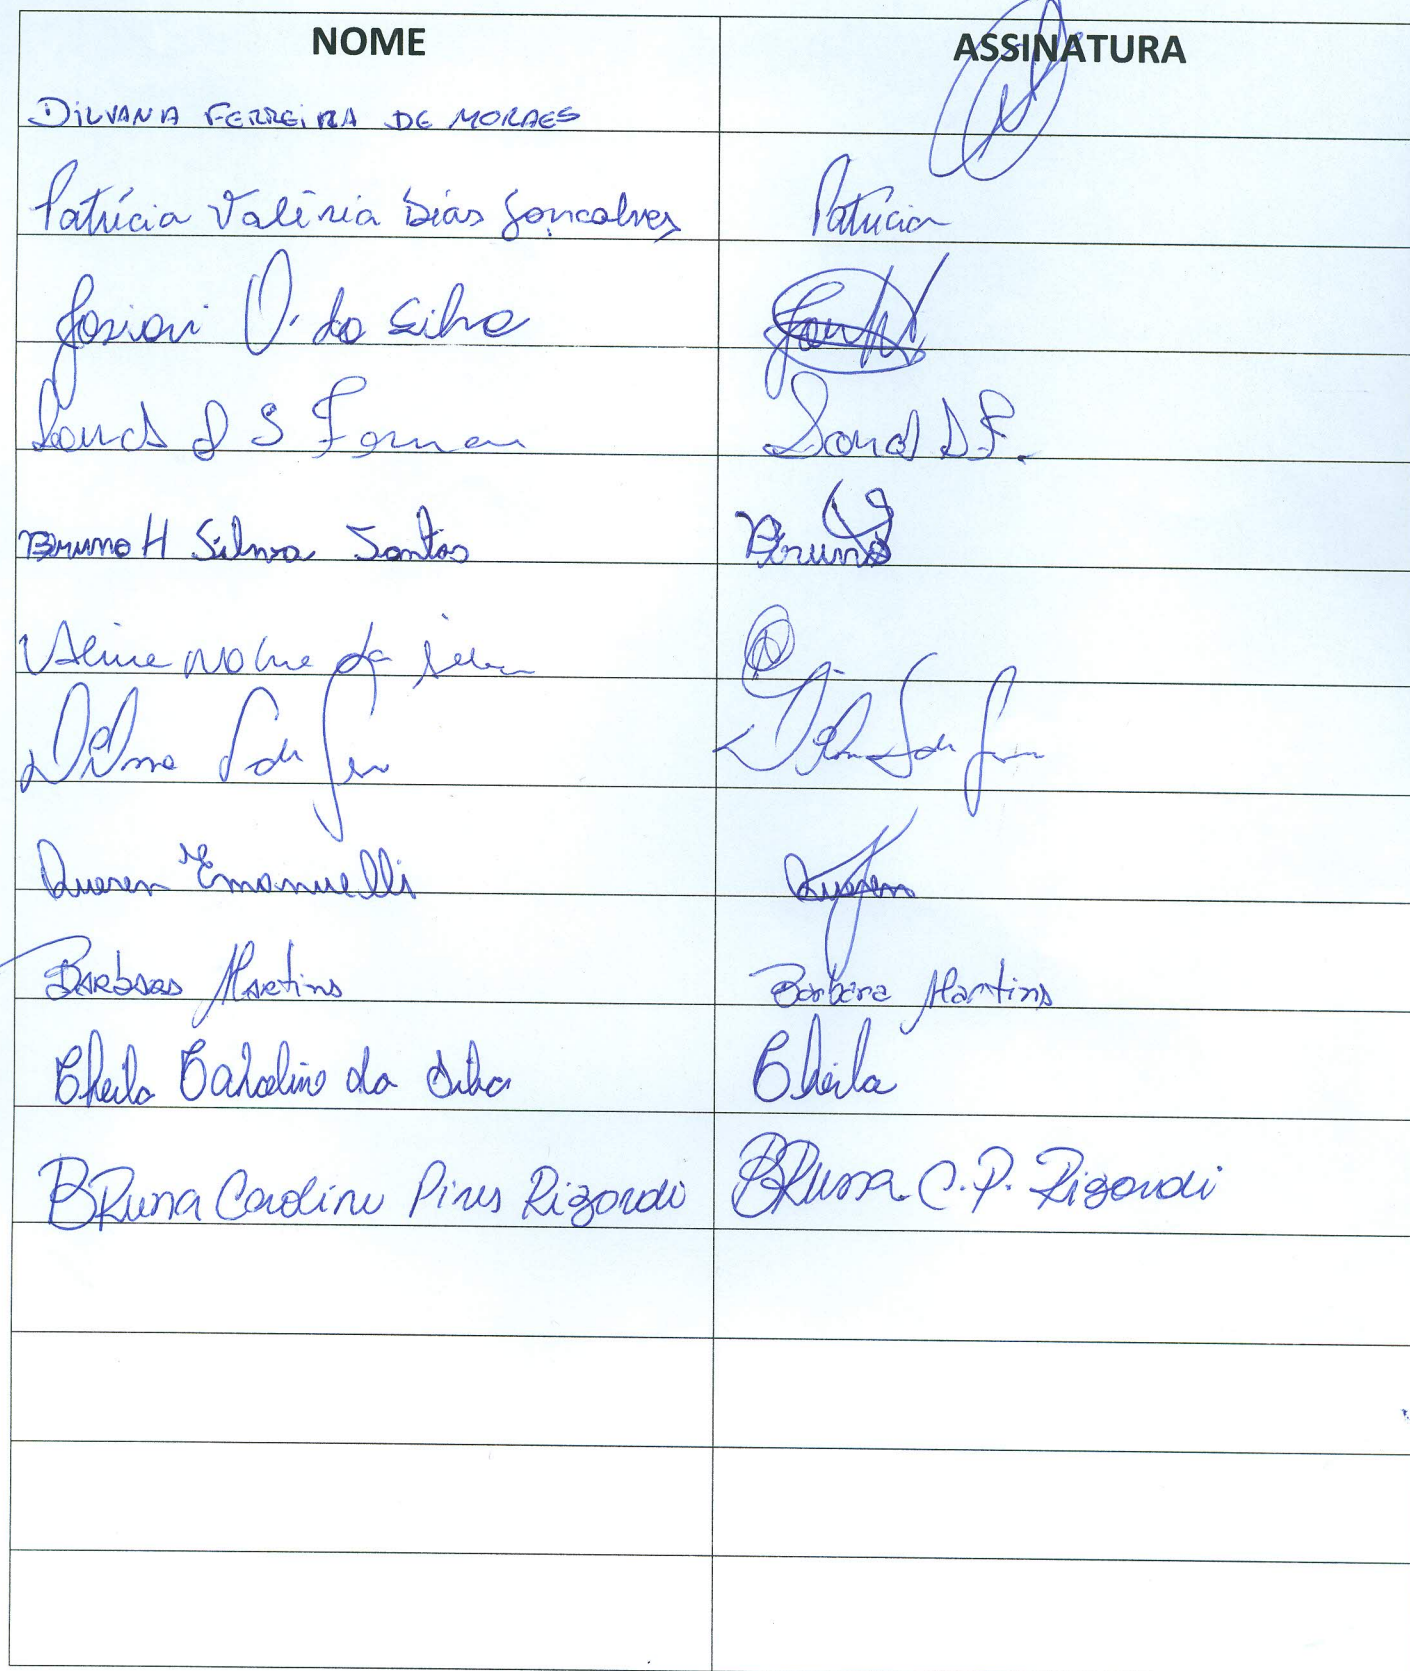 NOME ASSINATURA
DILVANA FERREIRA DE MORAES
Patrícia Valéria Dias Gonçalves Patrícia
Josiani O. da Silva
D S
Bruno H Silva Santos Bruno
Aline Nobre da Silva
Dilma
Queren Emanuelli Queren
Barbara Martins Barbara Martins
Cheila Carolino da Silva Cheila
BRuna Caroline Pires Rizardi BRuna C.P. Rizardi